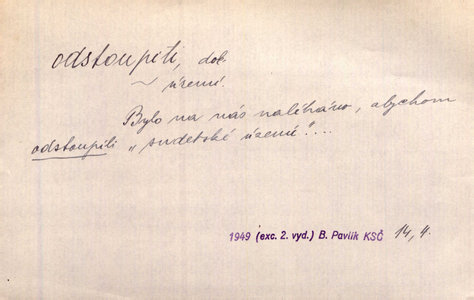 odstoupiti, dok
~ území.
Bylo na nás naléháno, abychom
odstoupili „sudetské území"...
1949 (exc. 2. vyd.) B. Pavlík KSČ 14, 4.